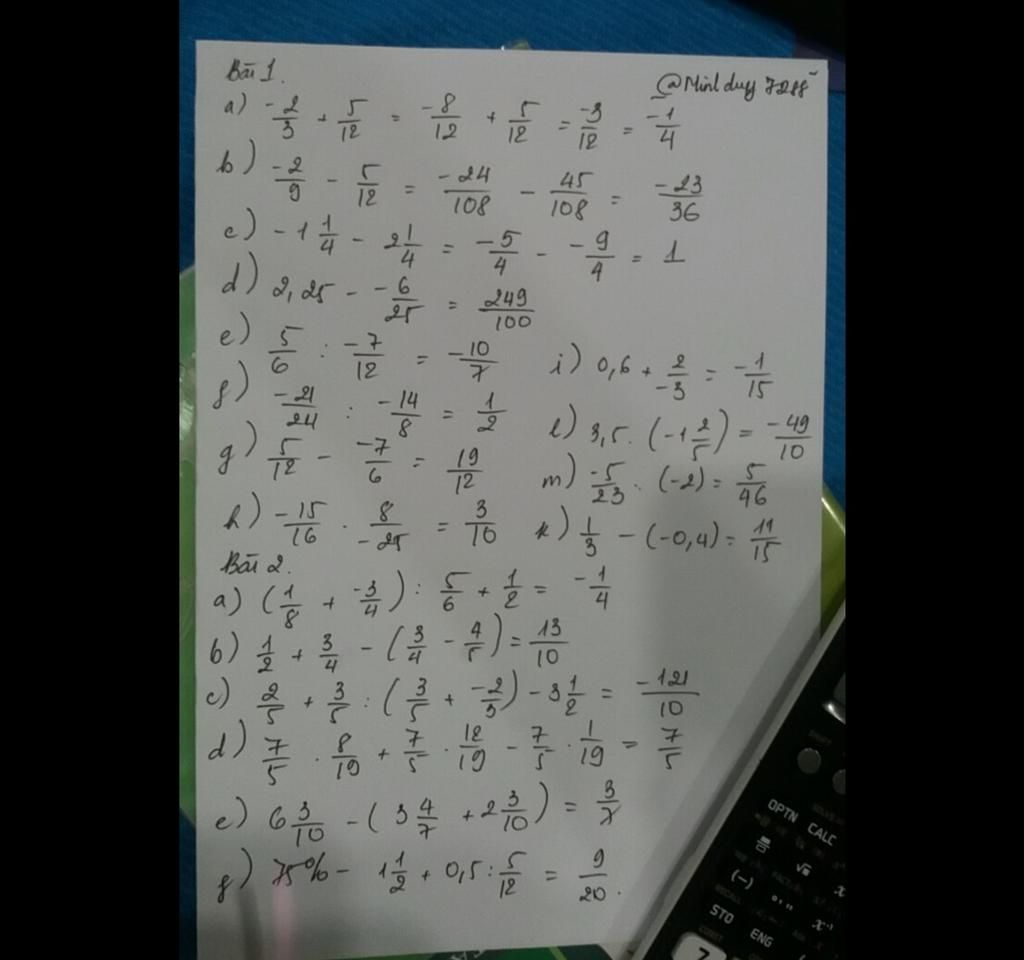 Bài 1.
@Minhduy7288
a) -2/3 + 5/12 = -8/12 + 5/12 = -3/12 = -1/4
b) -2/9 - 5/12 = -24/108 - 45/108 = -23/36
c) -1 1/4 - 2 1/4 = -5/4 - -9/4 = 1
d) 2,25 - -6/25 = 249/100
e) 5/6 : -7/12 = -10/7
i) 0,6 + 2/-3 = -1/15
f) -21/24 : -14/8 = 1/2
l) 3,5 . (-1 2/5) = -49/10
g) 5/12 - -7/6 = 19/12
m) -5/23 : (-2) = 5/46
h) -15/16 . 8/-25 = 3/10
k) 1/3 - (-0,4) = 11/15
Bài 2.
a) (1/8 + -3/4) : 5/6 + 1/2 = -1/4
b) 1/2 + 3/4 - (3/4 - 4/5) = 13/10
c) 2/5 + 3/5 : (3/5 + -2/3) - 3 1/2 = -121/10
d) 7/5 . 8/19 + 7/5 . 12/19 - 7/5 . 1/19 = 7/5
e) 6 3/10 - (3 4/7 + 2 3/10) = 3/7
f) 75% - 1 1/2 + 0,5 : 5/12 = 9/20.
OPTN CALC
(-)
x⁻¹
STO ENG
7